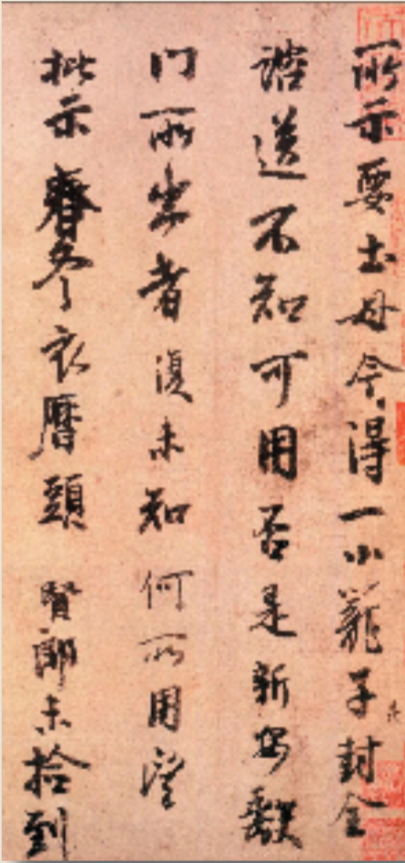 所示要土母今得一小籠子封全
諮送不知可用否是新安缺
门所出者復未知何所用望
批示春冬衣曆頭 賢郎未拾到